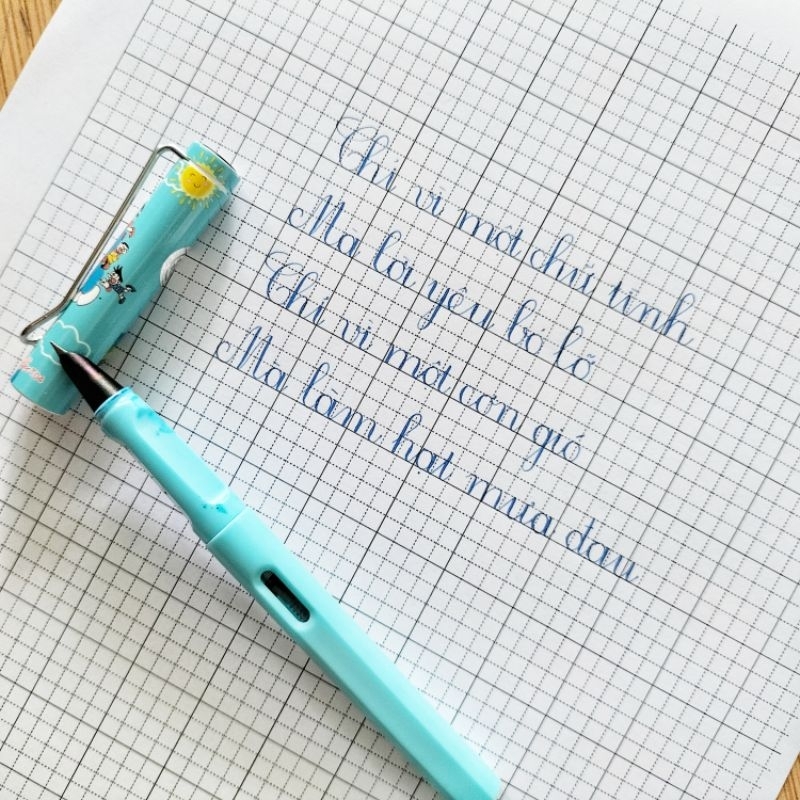 Chỉ vì một chữ tình
Mà lời yêu bỏ lỡ
Chỉ vì một cơn gió
Mà làm hạt mưa đau